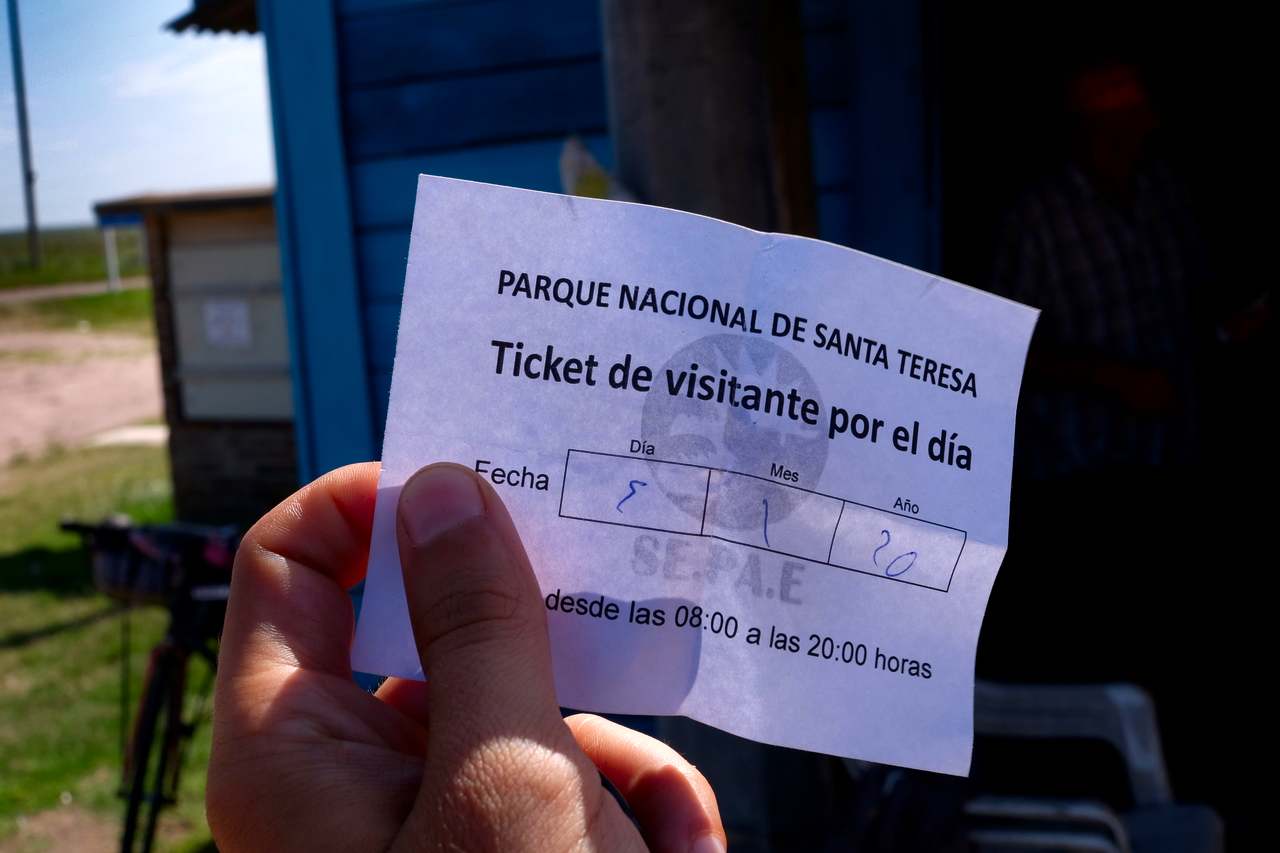 PARQUE NACIONAL DE SANTA TERESA
Ticket de visitante por el día
Día Mes Año
Fecha 5 1 20
SE.PA.E
desde las 08:00 a las 20:00 horas